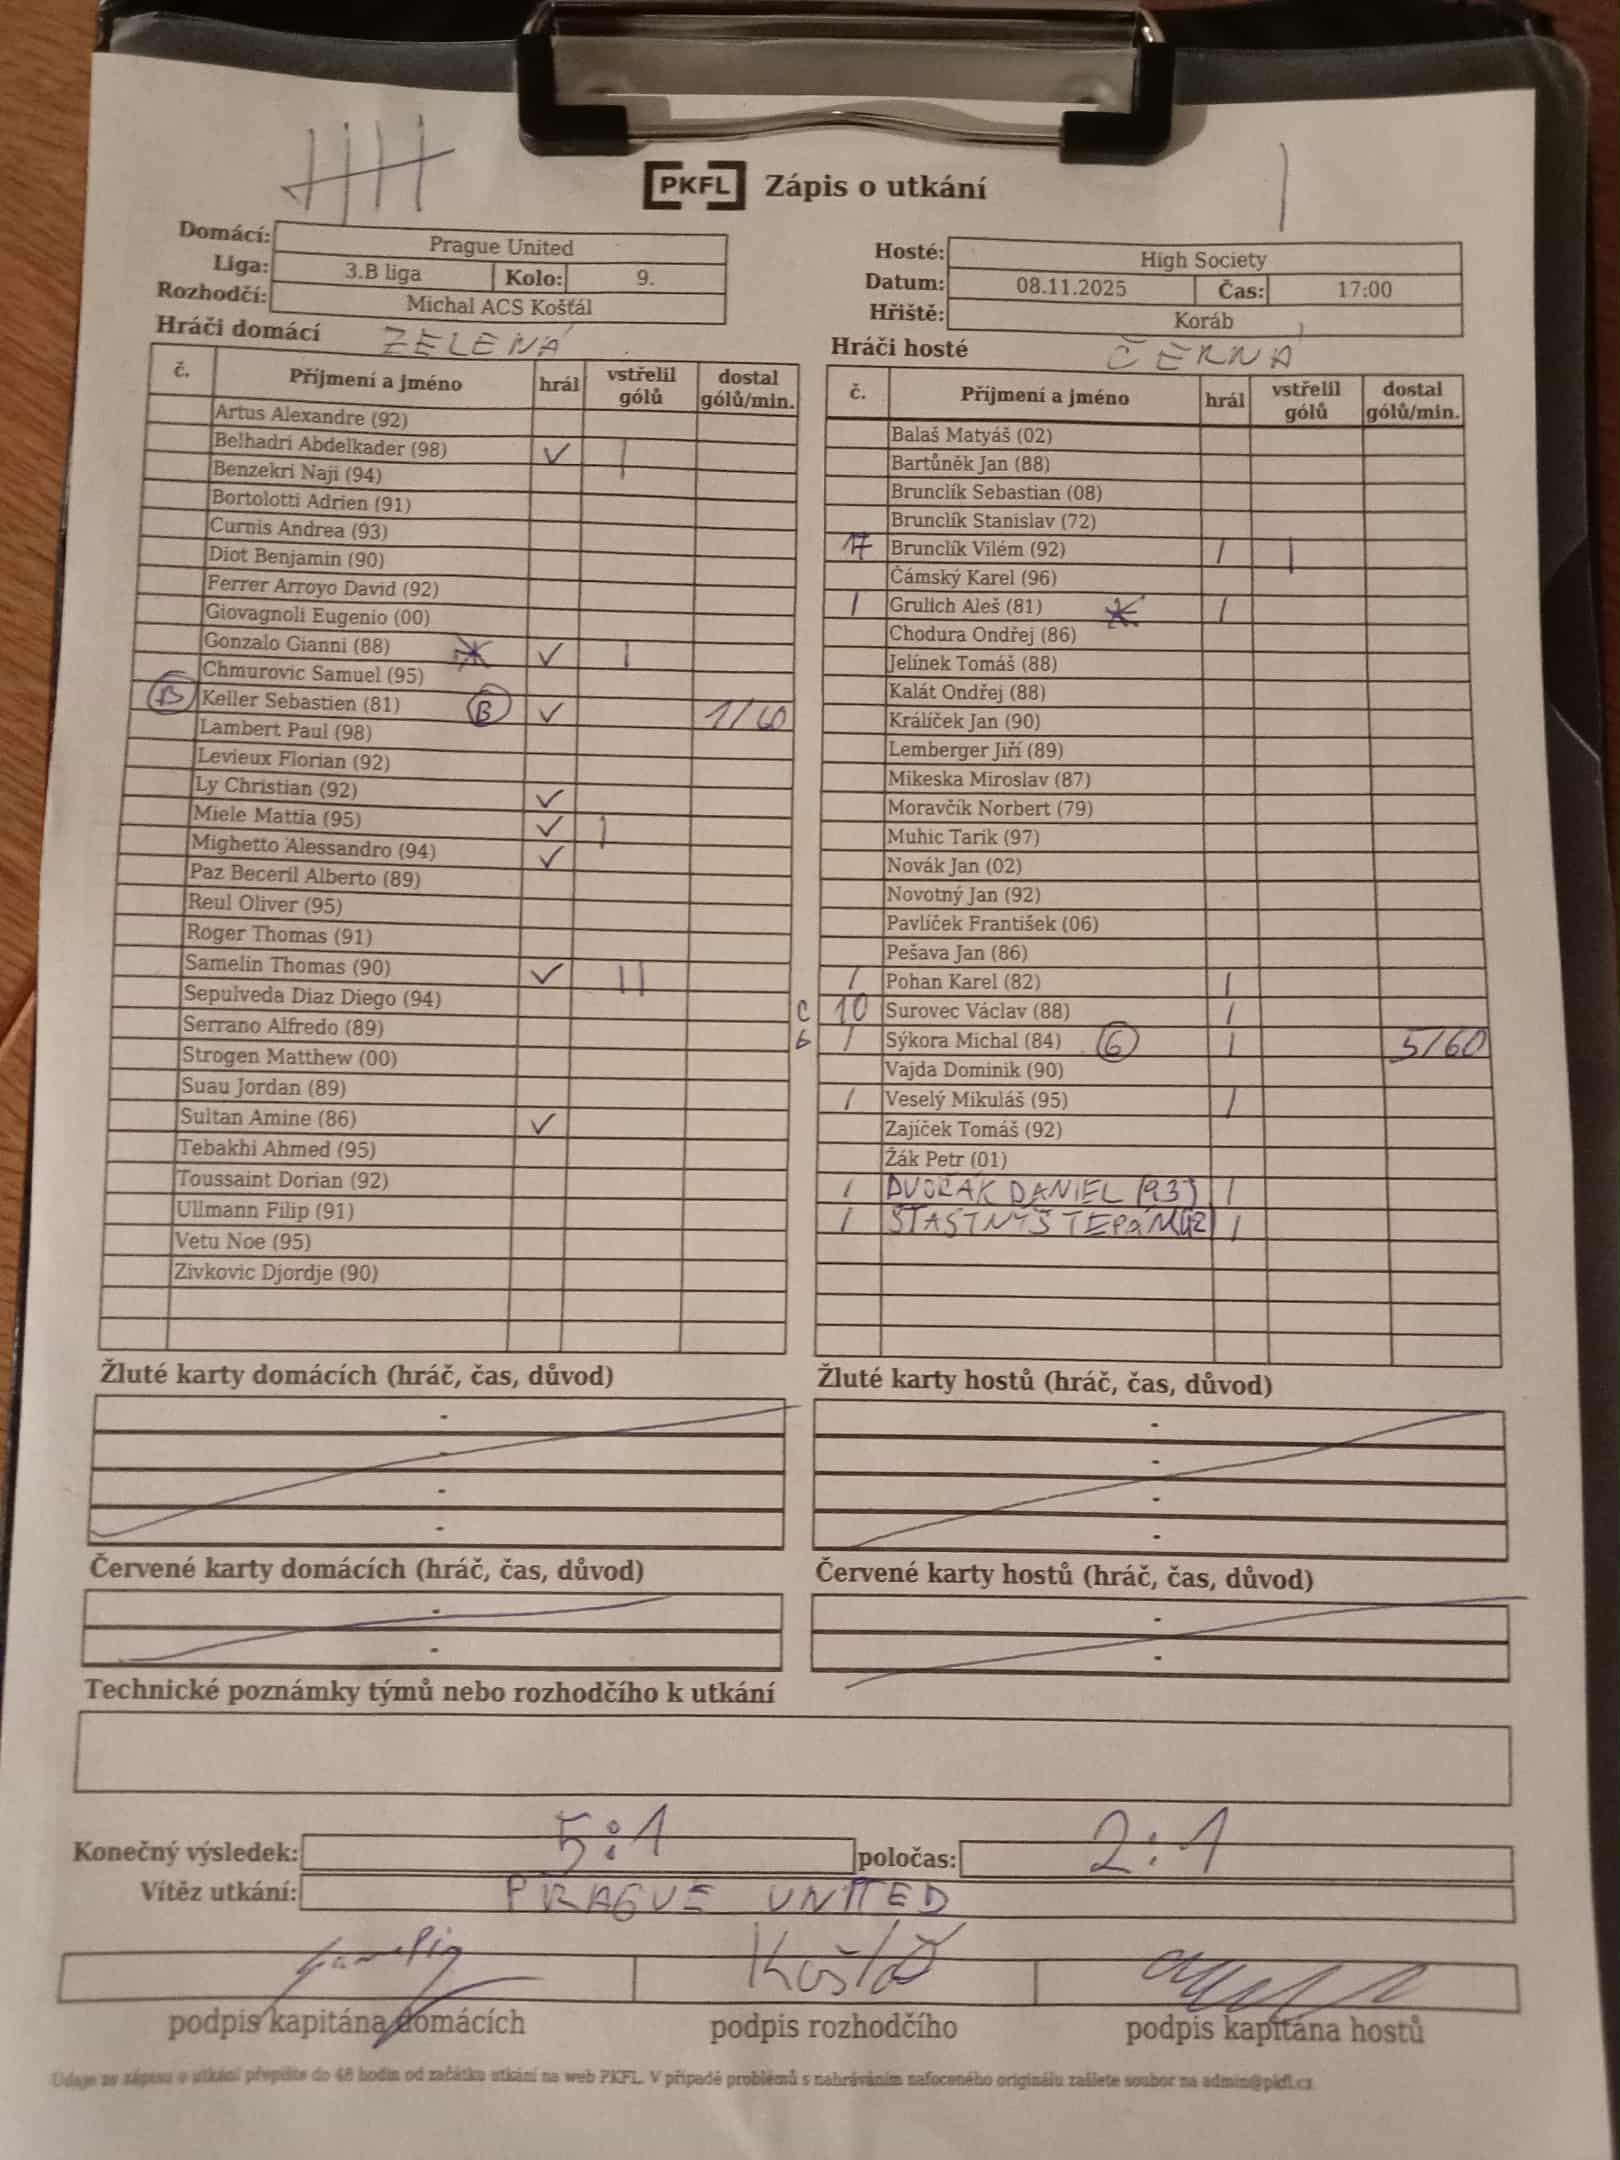 PKFL Zápis o utkání
Domácí: Prague United
Liga: 3.B liga Kolo: 9.
Rozhodčí: Michal ACS Košťál
Hosté: High Society
Datum: 08.11.2025 Čas: 17:00
Hřiště: Koráb
Hráči domácí ZELENÁ
č. Příjmení a jméno hrál vstřelil gólů dostal gólů/min.
Artus Alexandre (92)
Belhadri Abdelkader (98) ✓ |
Benzekri Naji (94)
Bortolotti Adrien (91)
Curnis Andrea (93)
Diot Benjamin (90)
Ferrer Arroyo David (92)
Giovagnoli Eugenio (00)
Gonzalo Gianni (88) * ✓ |
Chmurovic Samuel (95)
B Keller Sebastien (81) B ✓ 1/60
Lambert Paul (98)
Levieux Florian (92)
Ly Christian (92) ✓
Miele Mattia (95) ✓ |
Mighetto Alessandro (94) ✓
Paz Beceril Alberto (89)
Reul Oliver (95)
Roger Thomas (91)
Samelin Thomas (90) ✓ ||
Sepulveda Diaz Diego (94)
Serrano Alfredo (89)
Strogen Matthew (00)
Suau Jordan (89)
Sultan Amine (86) ✓
Tebakhi Ahmed (95)
Toussaint Dorian (92)
Ullmann Filip (91)
Vetu Noe (95)
Zivkovic Djordje (90)
Hráči hosté ČERNÁ
č. Příjmení a jméno hrál vstřelil gólů dostal gólů/min.
Balaš Matyáš (02)
Bartůněk Jan (88)
Brunclík Sebastian (08)
Brunclík Stanislav (72)
17 Brunclík Vilém (92) / |
Čámský Karel (96)
/ Grulich Aleš (81) * /
Chodura Ondřej (86)
Jelínek Tomáš (88)
Kalát Ondřej (88)
Králíček Jan (90)
Lemberger Jiří (89)
Mikeska Miroslav (87)
Moravčík Norbert (79)
Muhic Tarik (97)
Novák Jan (02)
Novotný Jan (92)
Pavlíček František (06)
Pešava Jan (86)
/ Pohan Karel (82) /
C 10 Surovec Václav (88) /
G / Sýkora Michal (84) G / 5/60
Vajda Dominik (90)
/ Veselý Mikuláš (95) /
Zajíček Tomáš (92)
Žák Petr (01)
/ DVOŘÁK DANIEL (93) /
/ ŠTASTNÝ ŠTEPÁN /
Žluté karty domácích (hráč, čas, důvod)
-
-
-
-
Žluté karty hostů (hráč, čas, důvod)
-
-
-
-
Červené karty domácích (hráč, čas, důvod)
-
-
Červené karty hostů (hráč, čas, důvod)
-
-
Technické poznámky týmů nebo rozhodčího k utkání
Konečný výsledek: 5:1 poločas: 2:1
Vítěz utkání: PRAGUE UNITED
podpis kapitána domácích podpis rozhodčího podpis kapitána hostů
Údaje ze zápisu o utkání přepište do 48 hodin od začátku utkání na web PKFL. V případě problémů s nahráváním nafoceného originálu zašlete soubor na admin@pkfl.cz